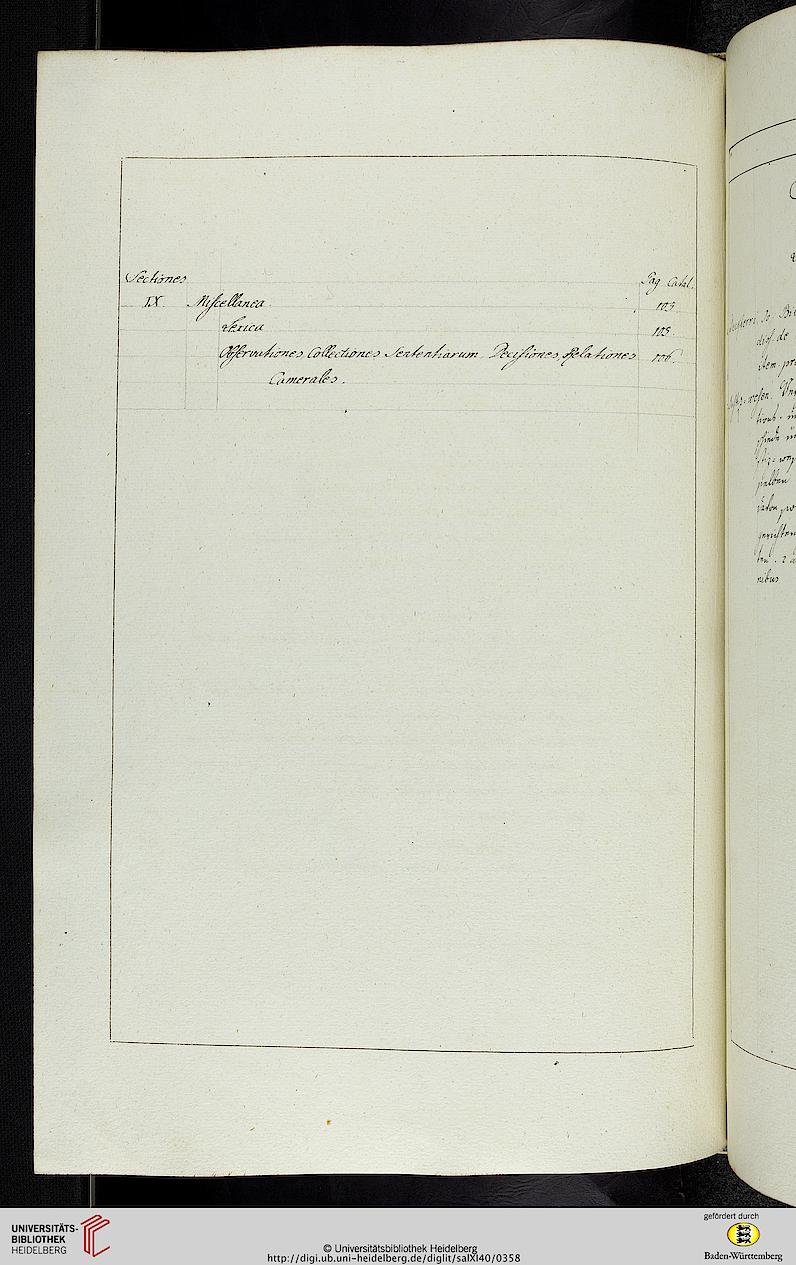 Sectiones Pag. Catal.
IX. Miscellanea 105
Lexica 105
Observationes, Collectiones Sententiarum, Decisiones, Relationes 106.
Camerales.
dess. de
Item. pro
wesen. Un
nibus
UNIVERSITÄTS-
BIBLIOTHEK
HEIDELBERG
© Universitätsbibliothek Heidelberg
http://digi.ub.uni-heidelberg.de/diglit/salXI40/0358
gefördert durch
Baden-Württemberg